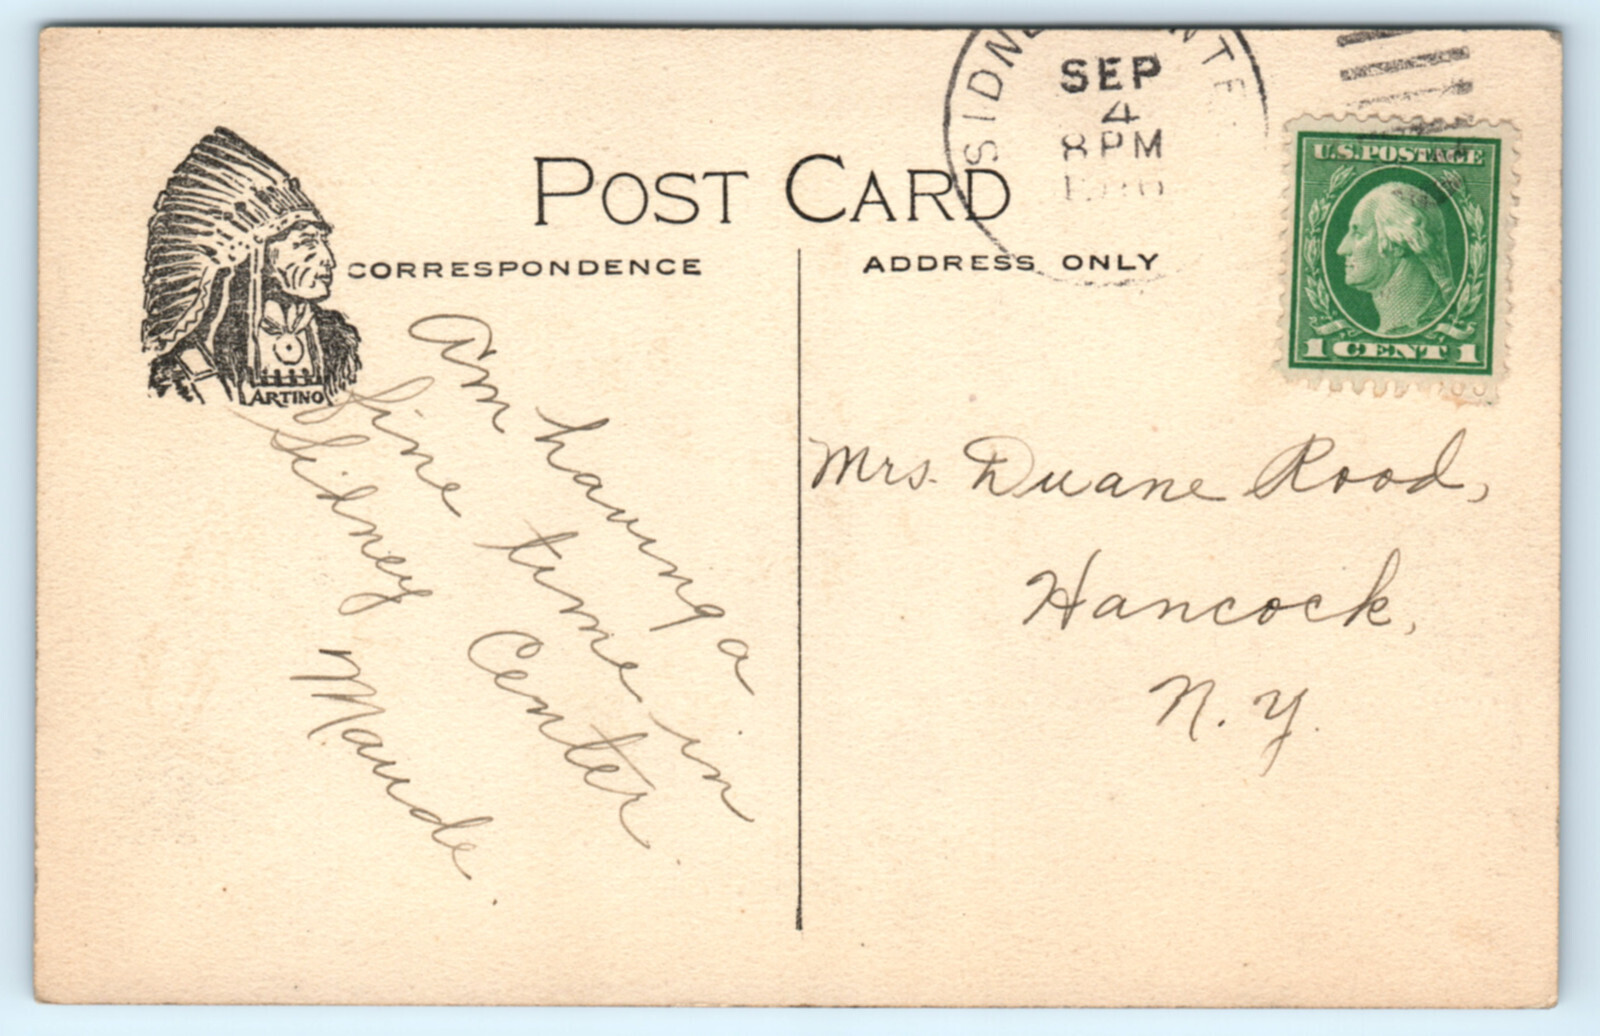 SIDNE NTE
SEP
4
8 PM
U.S. POSTAGE
1 CENT 1
POST CARD
CORRESPONDENCE
ADDRESS ONLY
ARTINO
Am having a
fine time in
Sidney Center.
Maude.
Mrs. Duane Rood,
Hancock,
N. Y.